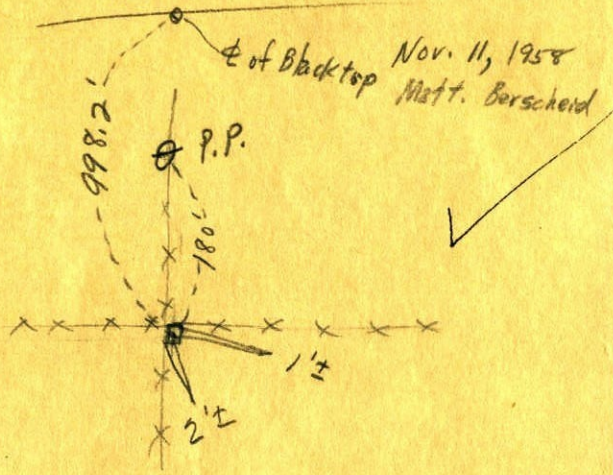 ℄ of Blacktop
Nov. 11, 1958
Matt. Berscheid
998.2'
P.P.
180'
1'±
2'±